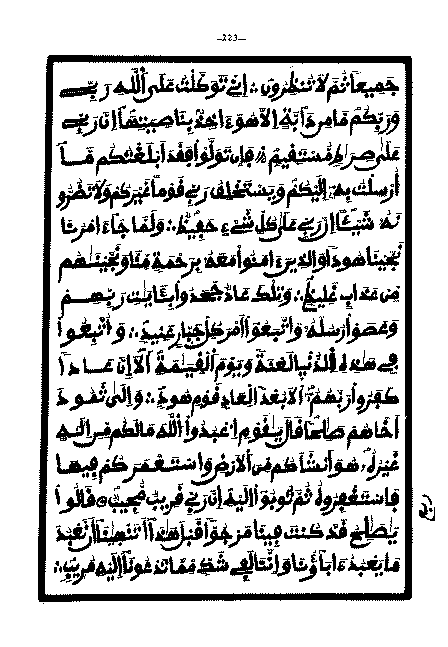 -223-
جَمِيعاً ثُمَّ لَا تُنظِرُونِ ∴ إِنِّي تَوَكَّلْتُ عَلَى اللَّهِ رَبِّي
وَرَبِّكُم مَّا مِن دَآبَّةٍ إِلَّا هُوَ ءَاخِذٌ بِنَاصِيَتِهَا إِنَّ رَبِّي
عَلَىٰ صِرَاطٍ مُّسْتَقِيمٍ ∴ فَإِن تَوَلَّوْا فَقَدْ أَبْلَغْتُكُم مَّآ
أُرْسِلْتُ بِهِ إِلَيْكُمْ وَيَسْتَخْلِفُ رَبِّي قَوْماً غَيْرَكُمْ وَلَا تَضُرُّو
نَهُ شَيْئاً إِنَّ رَبِّي عَلَىٰ كُلِّ شَيْءٍ حَفِيظٌ ∴ وَلَمَّا جَآءَ امْرُنَا
نَجَّيْنَا هُوداً وَالَّذِينَ ءَامَنُوا مَعَهُ بِرَحْمَةٍ مِّنَّا وَنَجَّيْنَٰهُم
مِّنْ عَذَابٍ غَلِيظٍ ∴ وَتِلْكَ عَادٌ جَحَدُوا بِـَٔايَٰتِ رَبِّهِمْ
وَعَصَوْا رُسُلَهُ وَاتَّبَعُوا أَمْرَ كُلِّ جَبَّارٍ عَنِيدٍ ∴ وَأُتْبِعُوا
فِي هَٰذِهِ الدُّنْيَا لَعْنَةً وَيَوْمَ الْقِيَٰمَةِ أَلَآ إِنَّ عَاداً
كَفَرُوا رَبَّهُمْ أَلَا بُعْداً لِّعَادٍ قَوْمِ هُودٍ ∴ وَإِلَىٰ ثَمُودَ
أَخَاهُمْ صَٰلِحاً قَالَ يَٰقَوْمِ اعْبُدُوا اللَّهَ مَالَكُم مِّنِ الَٰهٍ
غَيْرُهُ هُوَ أَنشَأَكُم مِّنَ الْأَرْضِ وَاسْتَعْمَرَكُمْ فِيهَا
فَاسْتَغْفِرُوهُ ثُمَّ تُوبُوا إِلَيْهِ إِنَّ رَبِّي قَرِيبٌ مُّجِيبٌ ∴ قَالُوا
يَٰصَٰلِحُ قَدْ كُنتَ فِينَا مَرْجُوّاً قَبْلَ هَٰذَآ أَتَنْهَيٰنَآ أَن نَّعْبُدَ
مَا يَعْبُدُ ءَابَآؤُنَا وَإِنَّنَا لَفِي شَكٍّ مِّمَّا تَدْعُونَآ إِلَيْهِ مُرِيبٍ ∴